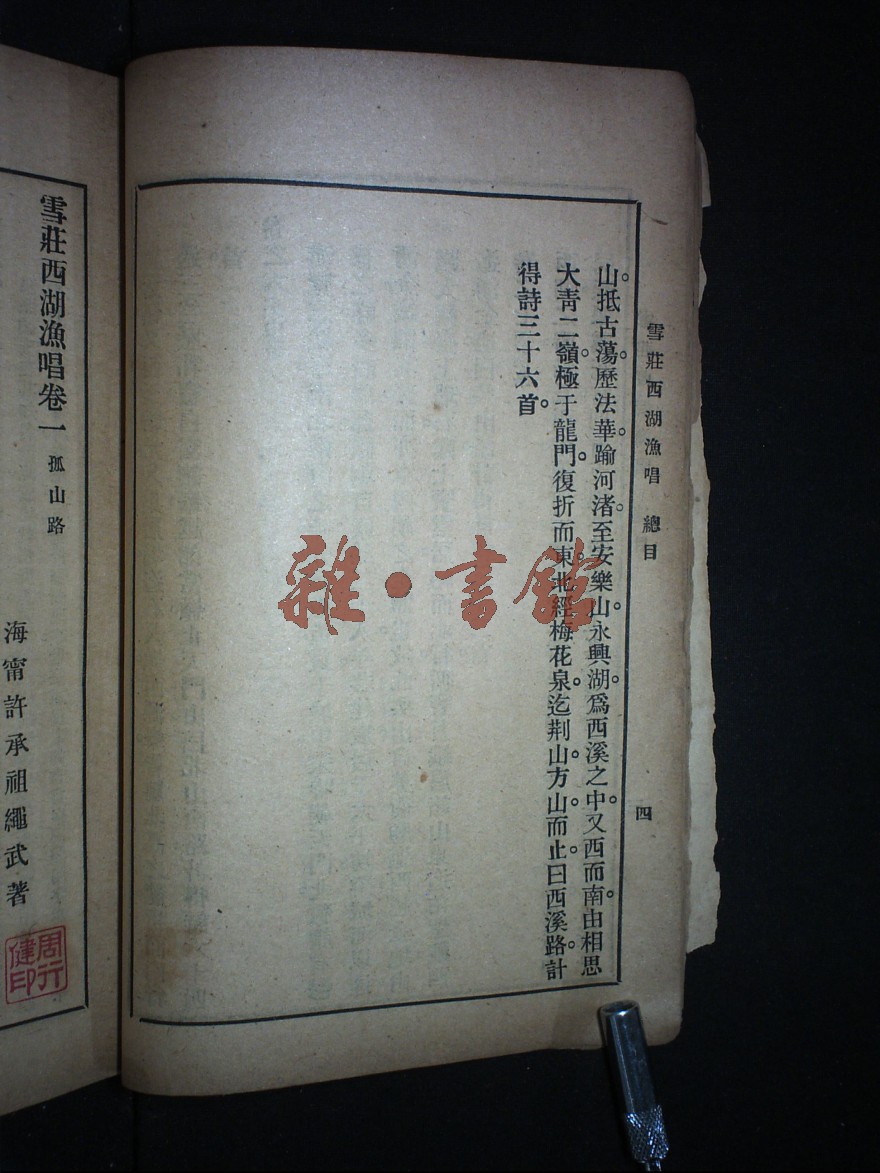 雪莊西湖漁唱 總目 四
山。抵古蕩。歷法華。踰河渚。至安樂山。永興湖。爲西溪之中。又西而南。由相思
大青二嶺。極于龍門。復折而東北。經梅花泉。迄荆山。方山而止。曰西溪路。計
得詩三十六首。
雪莊西湖漁唱卷一 孤山路
海甯許承祖繩武著
周行健印
雜·書館